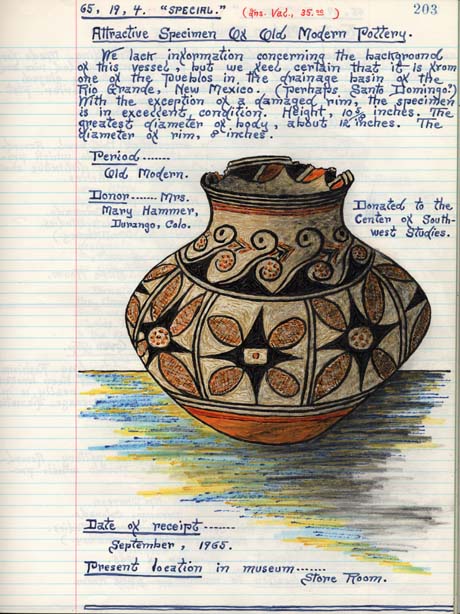 65, 19, 4. "SPECIAL." (Ins. Val., 35.00) 203
Attractive Specimen Of Old Modern Pottery.
We lack information concerning the background
of this vessel, but we feel certain that it is from
one of the Pueblos in the drainage basin of the
Rio Grande, New Mexico. (Perhaps Santo Domingo?)
With the exception of a damaged rim, the specimen
is in excellent condition. Height, inches. The
greatest diameter of body, about 12 inches. The
diameter of rim, 8 inches.
Period -------
Old Modern.
Donor ------ Mrs.
Mary Hammer,
Durango, Colo.
Donated to the
Center of South-
west Studies.
Date of receipt -------
September, 1965.
Present location in museum ------
Store Room.